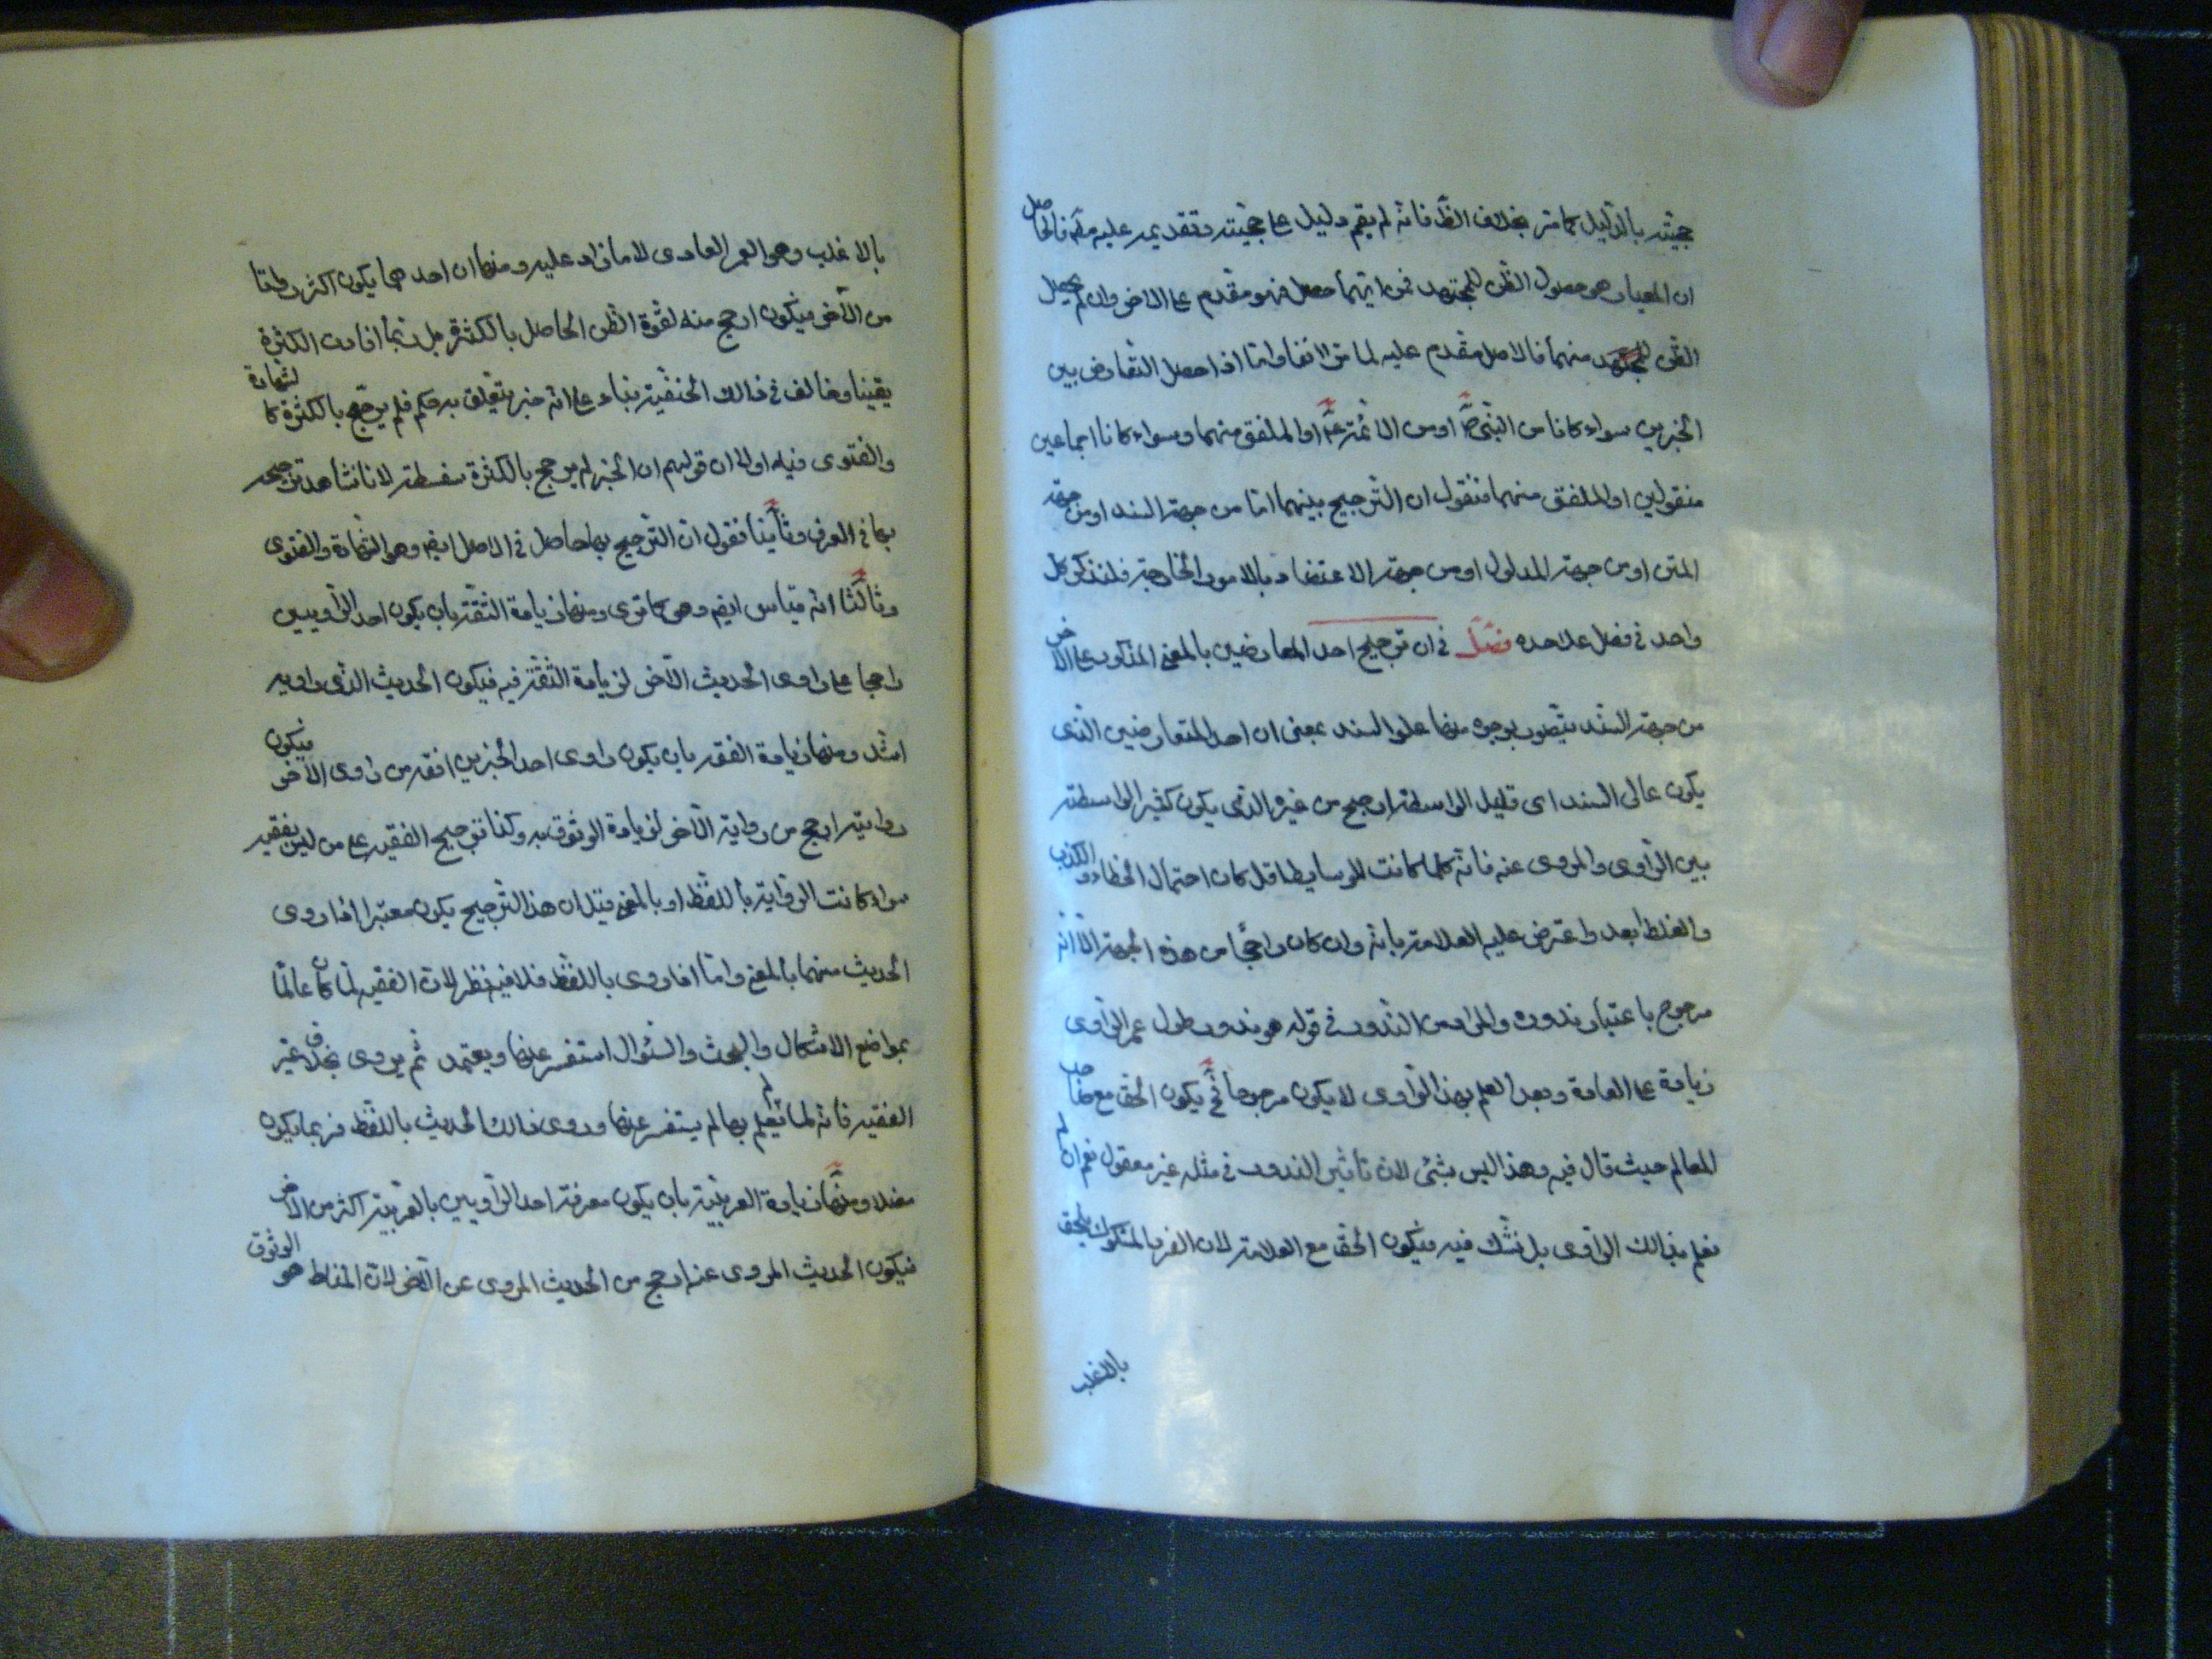 حجيته بالدليل كما مر بخلاف الظ فانه لم يقم دليل على حجيته وتقديمه عليه مط فالحاصل
ان المعيار هو حصول الظن للمجتهد فمن ايهما حصل فهو مقدم على الاخر وان لم يحصل
الظن للمجتهد منهما فالاصل مقدم عليه لما مر انفا واما اذا حصل التعارض بين
الخبرين سواء كانا من النبي ص او من الائمة ع او الملفق منهما وسواء كانا اجماعين
منقولين او الملفق منهما فنقول ان الترجيح بينهما اما من جهة السند او من جهة
المتن او من جهة المدلول او من جهة الاعتضاد بالامور الخارجة فلنذكر كل
واحد في فصل علاحده فصل في ان ترجيح احد المعارضين بالمعنى المذكور على الاخر
من جهة السند يتصور بوجوه منها علو السند بمعنى ان احد المتعارضين الذي
يكون عالى السند اى قليل الواسطة ارجح من غيره الذي يكون كثير الواسطة
بين الراوى والمروى عنه فانه كلما كانت الوسايط اقل كان احتمال الخطاء والكذب
والغلط ابعد واعترض عليه العلامة بانه وان كان راجحا من هذه الجهة الا انه
مرجوح باعتبار ندوره والمراد من الندور في قوله هو ندور طول عمر الراوى
زيادة على العادة وبعد العلم بهذا الراوى لا يكون مرجوحا فح يكون الحق مع صاحب
المعالم حيث قال فيه وهذا ليس بشئ لان تاثير الندور في مثله غير معقول نعم ان لم
نعلم بذالك الراوى بل نشك فيه فيكون الحق مع العلامة لان الفرد المشكوك يلحق
بالاغلب
بالاغلب وهو العمر العادى لا ما زاد عليه ومنها ان احدهما يكون اكثر طرقا
من الآخر فيكون ارجح منه لقوة الظن الحاصل بالكثرة بل ربما افادت الكثرة
يقينا وخالف في ذالك الحنفية بناء على انه خبر يتعلق به حكم فلم يرجح بالكثرة كالشهادة
والفتوى فيه اولا ان قولهم ان الخبر لم يرجح بالكثرة سفسطة لانا نشاهد ترجيحه
بها في العرف وثانيا فنقول ان الترجيح بها حاصل في الاصل ايضا وهو الشهادة والفتوى
وثالثا انه قياس ايضا وهو كما ترى ومنها زيادة الثقة بان يكون احد الراويين
راجحا على راوى الحديث الآخر لزيادة الثقة فيه فيكون الحديث الذي راويه
اشد ومنها زيادة الفقه بان يكون راوى احد الخبرين افقه من راوى الآخر فيكون
روايته ارجح من رواية الآخر لزيادة الوثوق به وكذا ترجيح الفقيه على من ليس بفقيه
سواء كانت الرواية باللفظ او بالمعنى قيل ان هذا الترجيح يكون معتبرا اذا روى
الحديث منهما بالمعنى واما اذا روى باللفظ فلا فيه نظر لان الفقيه لما كان عالما
بمواضع الاشكال والبحث والسئوال استفسر عنها ويعتمد ثم يروى بخلاف غير
الفقيه فانه لما لم يعلم بها لم يستفسر عنها وروى ذالك الحديث باللفظ فربما يكون
مخلا ومنها زيادة العربية بان يكون معرفة احد الراويين بالعربية اكثر من الاخر
فيكون الحديث المروى عنه ارجح من الحديث المروى عن الآخر لان المناط هو الوثوق